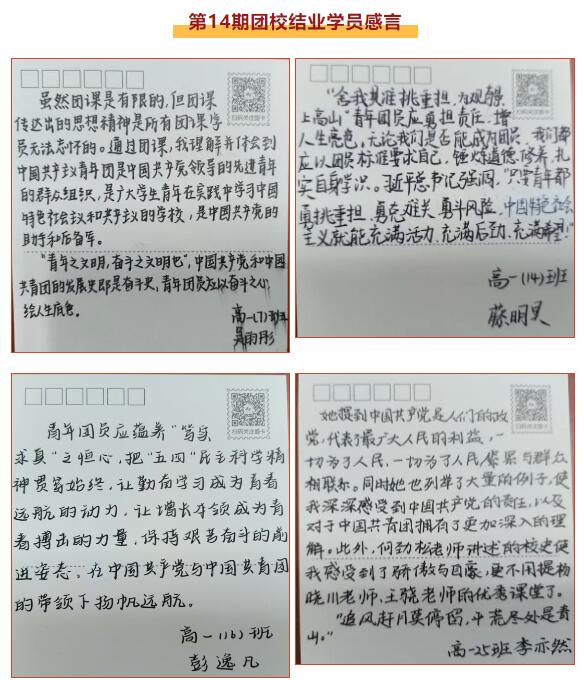 第14期团校结业学员感言
扫码关注壹卡
虽然团课是有限的,但团课
传达出的思想精神是所有团课学
员无法忘怀的。通过团课,我理解并体会到
中国共青团是中国共产党领导的先进青年
的群众组织,是广大学生青年在实践中学习中国
特色社会主义和共产主义的学校,是中国共产党的
助手和后备军。
“青年之文明,奋斗之文明也”,中国共产党和中国
共青团的发展史即是奋斗史,青年团员应以奋斗之心
绘人生底色。
高一(7)班
吴雨彤
扫码关注壹卡
“舍我其谁挑重担,
上高山”青年团员应勇担责任,增
人生亮色。无论我们是否能成为团员,我们都
应以团员标准要求自己,锤炼道德修养,扎
实自身学识。习近平总书记强调,“只要青年都
勇挑重担、勇克难关、勇斗风险,中国特色社会
主义就能充满活力、充满后劲、充满希望!”
高一(14)班
藤明昊
扫码关注壹卡
青年团员应蕴养“笃实
求真”之恒心,把“五四”民主科学精
神贯穿始终,让勤奋学习成为青春
远航的动力,让增长本领成为青
春搏击的力量,保持艰苦奋斗的前
进姿态。在中国共产党与中国共青团
的带领下扬帆远航。
高一(16)班
彭逸凡
扫码关注壹卡
她提到中国共产党是人们的政
党,代表了最广大人民的利益,一
切为了人民,一切为了人民,紧紧与群众
相联系。同时她也列举了大量的例子,使
我深深感受到中国共产党的责任,以及
对于中国共青团拥有了更加深入的理
解。此外,何劲松老师讲述的校史使
我感受到了骄傲与自豪,更不用提杨
晓川老师,王骁老师的优秀课堂了。
“追风赶月莫停留,平芜尽处是春
山。”
高一25班 李亦然